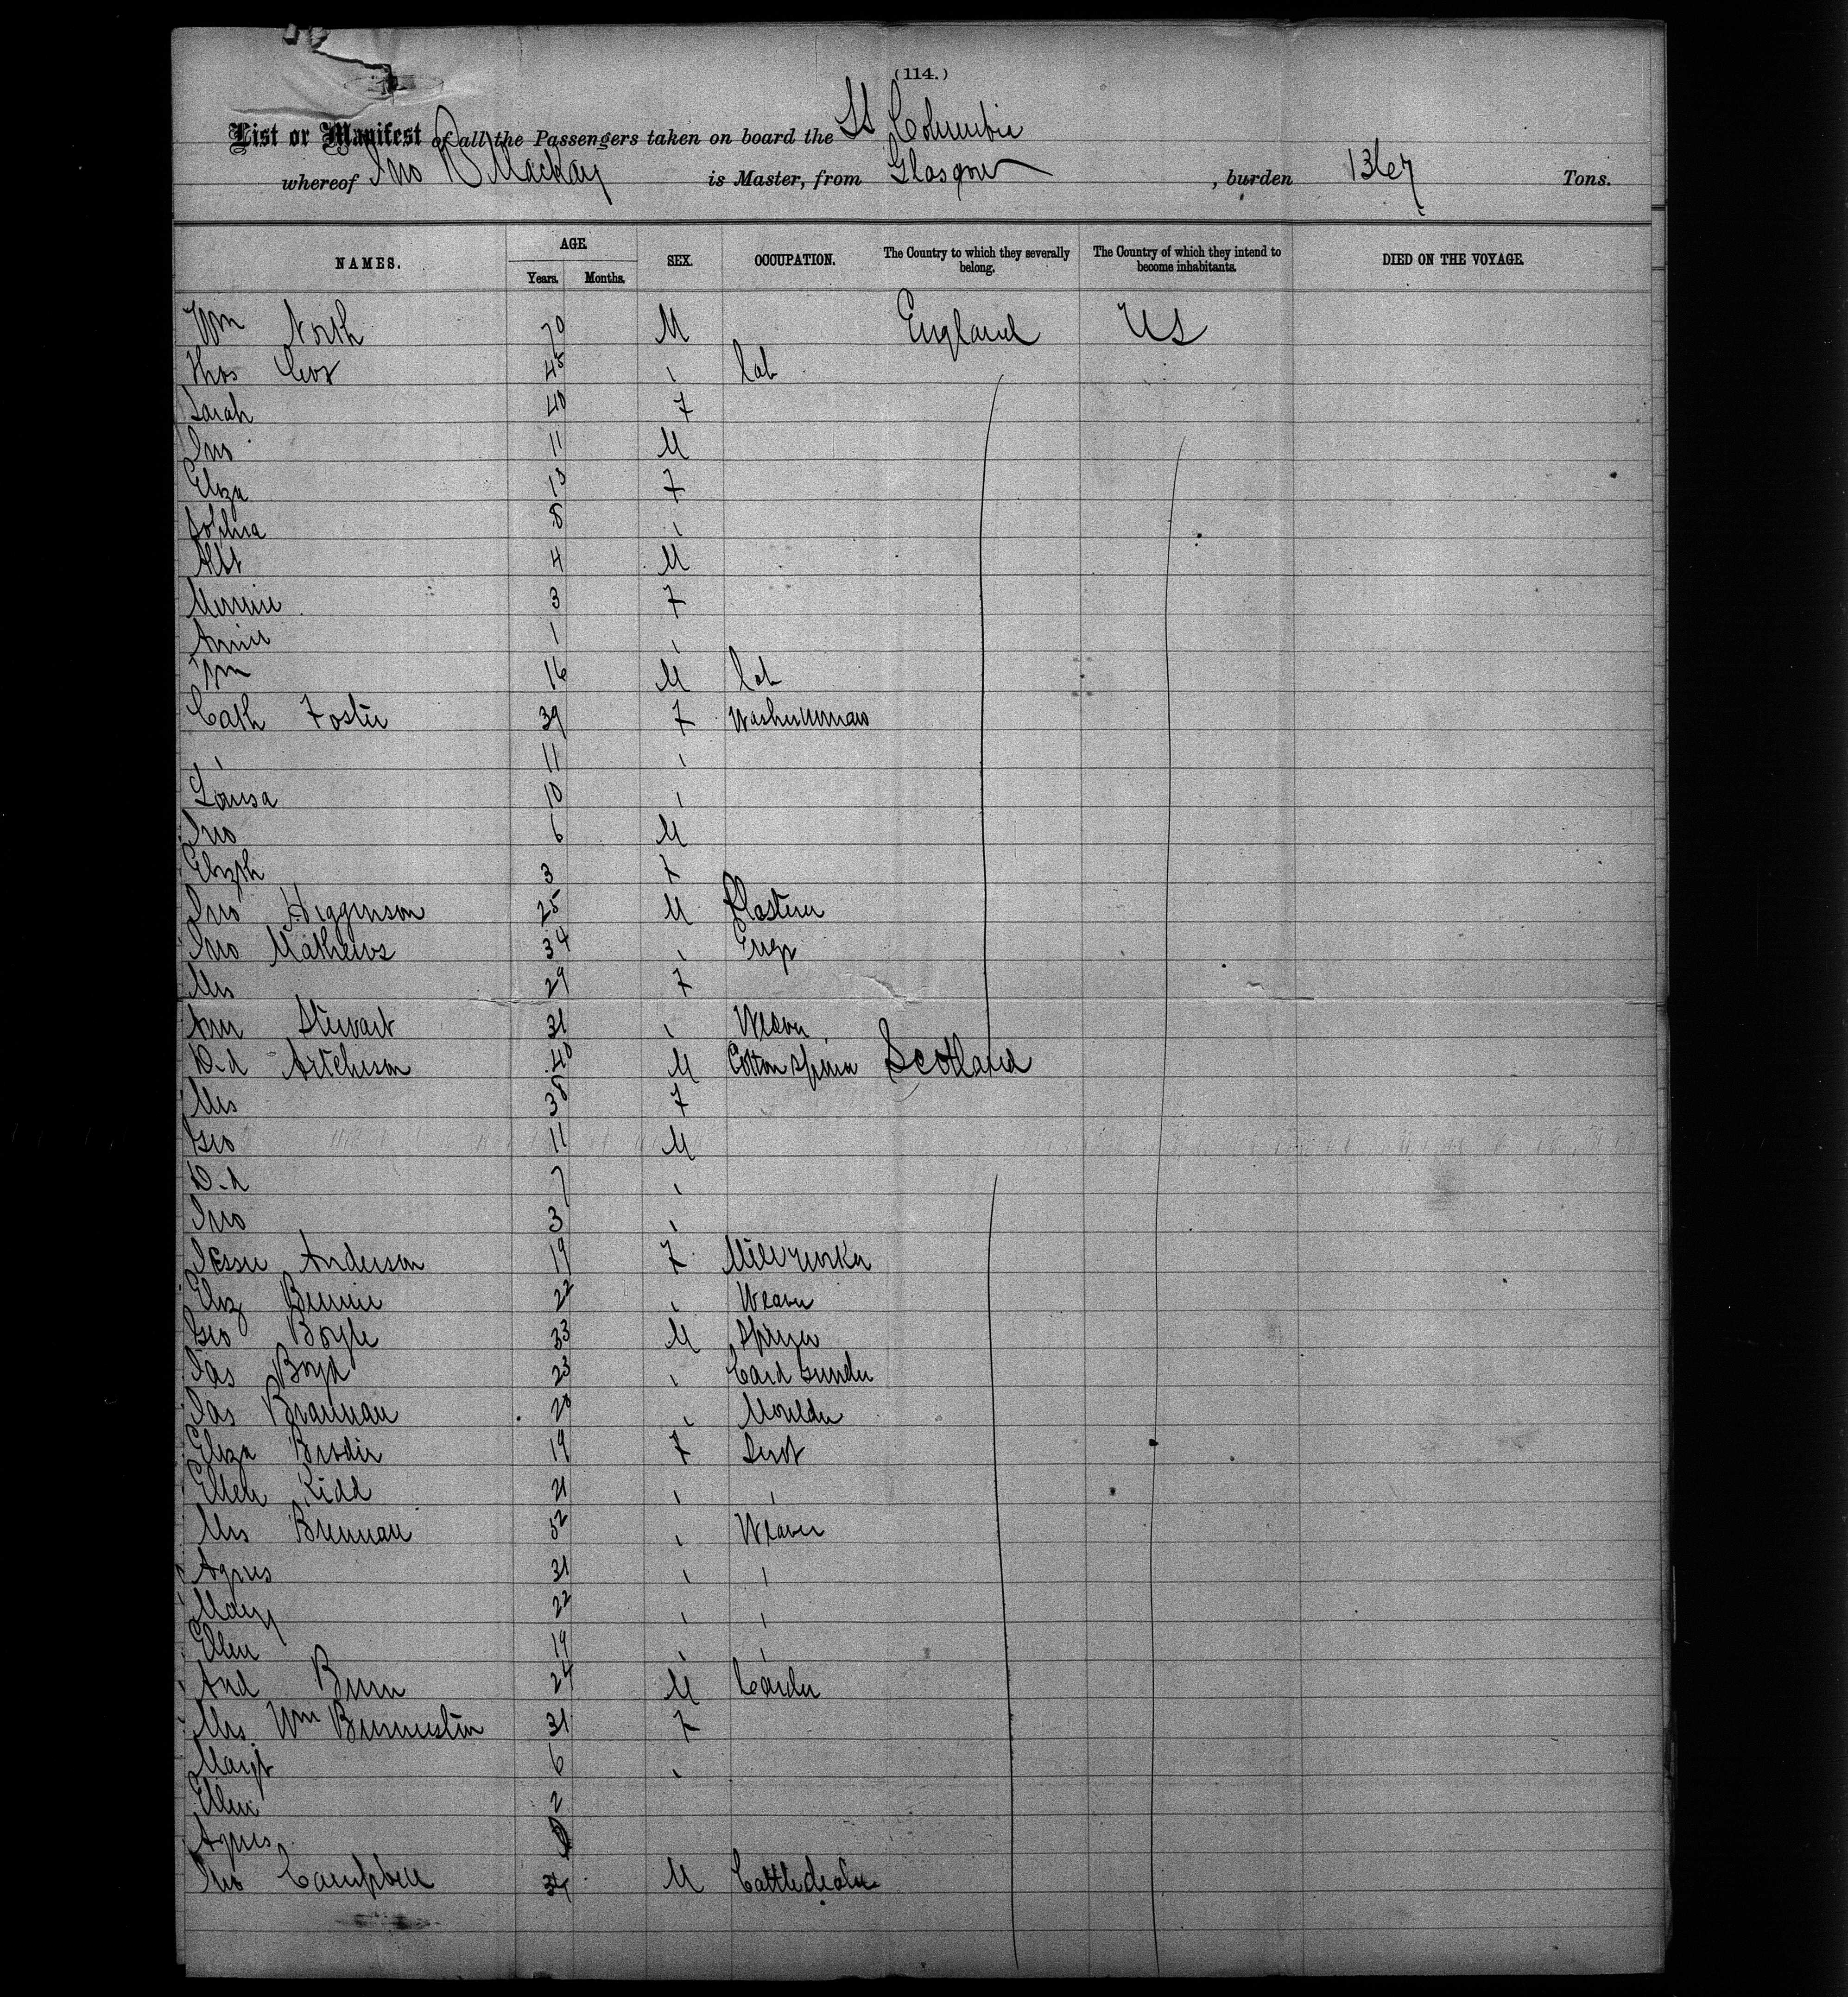 (114.)
List or Manifest of all the Passengers taken on board the SS Columbia
whereof Jno D Mackay is Master, from Glasgow, burden Tons.
NAMES. AGE. Years. Months. SEX. OCCUPATION. The Country to which they severally belong. The Country of which they intend to become inhabitants. DIED ON THE VOYAGE.
Wm North 70 M England US
Thos 48 " lab
Sarah 40 F
Jno 11 M
Eliza 10 F
Sophia 8 "
Albt 4 M
Minnie 3 F
Annie 1 "
Wm 16 M lab
Cath Foster 39 F Washerwoman
" 11 "
Louisa 10 "
Jno 6 M
Elizth 3 F
Jno Higginson 25 M Plasterer
Jno Mathews 34 " Engr
Mrs 29 F
Ann Stewart 31 " Weaver
D-d Aitchison 40 M Cotton Spinner Scotland
Mrs 38 F
Geo 11 M
D-d 7 "
Jno 3 "
Jessie Anderson 19 F Millworker
Eliz Bennie 22 " Weaver
Geo Boyle 33 M Spinner
Jas Boyd 23 " Card Grinder
Jas Brannan 20 " Moulder
Eliza Brodie 19 F Servt
Ellen Kidd 21 " "
Mrs Brennan 52 " Weaver
Agnes 31 " "
Mary 22 " "
Ellen 19 " "
And Burn 24 M Carder
Mrs Wm 31 F
Margt 6 "
Ellen 2
Agnes
Jno Campbell 34 M Cattledealer